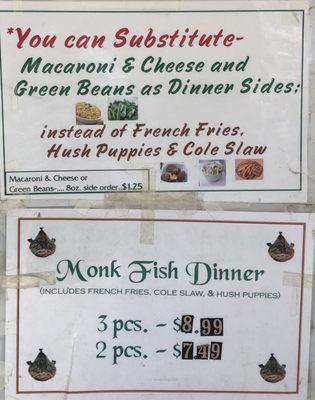 *You can Substitute-
Macaroni & Cheese and
Green Beans as Dinner Sides;
instead of French Fries,
Hush Puppies & Cole Slaw
Macaroni & Cheese or
Green Beans-.... 8oz. side order $1.25
Monk Fish Dinner
(INCLUDES FRENCH FRIES, COLE SLAW, & HUSH PUPPIES)
3 pcs. - $8.99
2 pcs. - $7.49